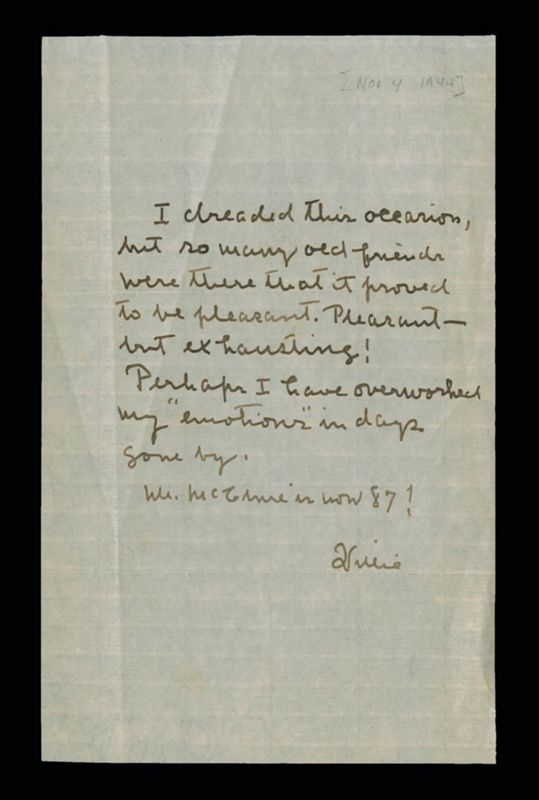 [Nov 4 1944]
I dreaded this occasion,
but so many old friends
were there that it proved
to be pleasant. Pleasant—
but exhausting!
Perhaps I have overworked
my "emotions" in days
gone by.
Mr. McClure is now 87!
Willie